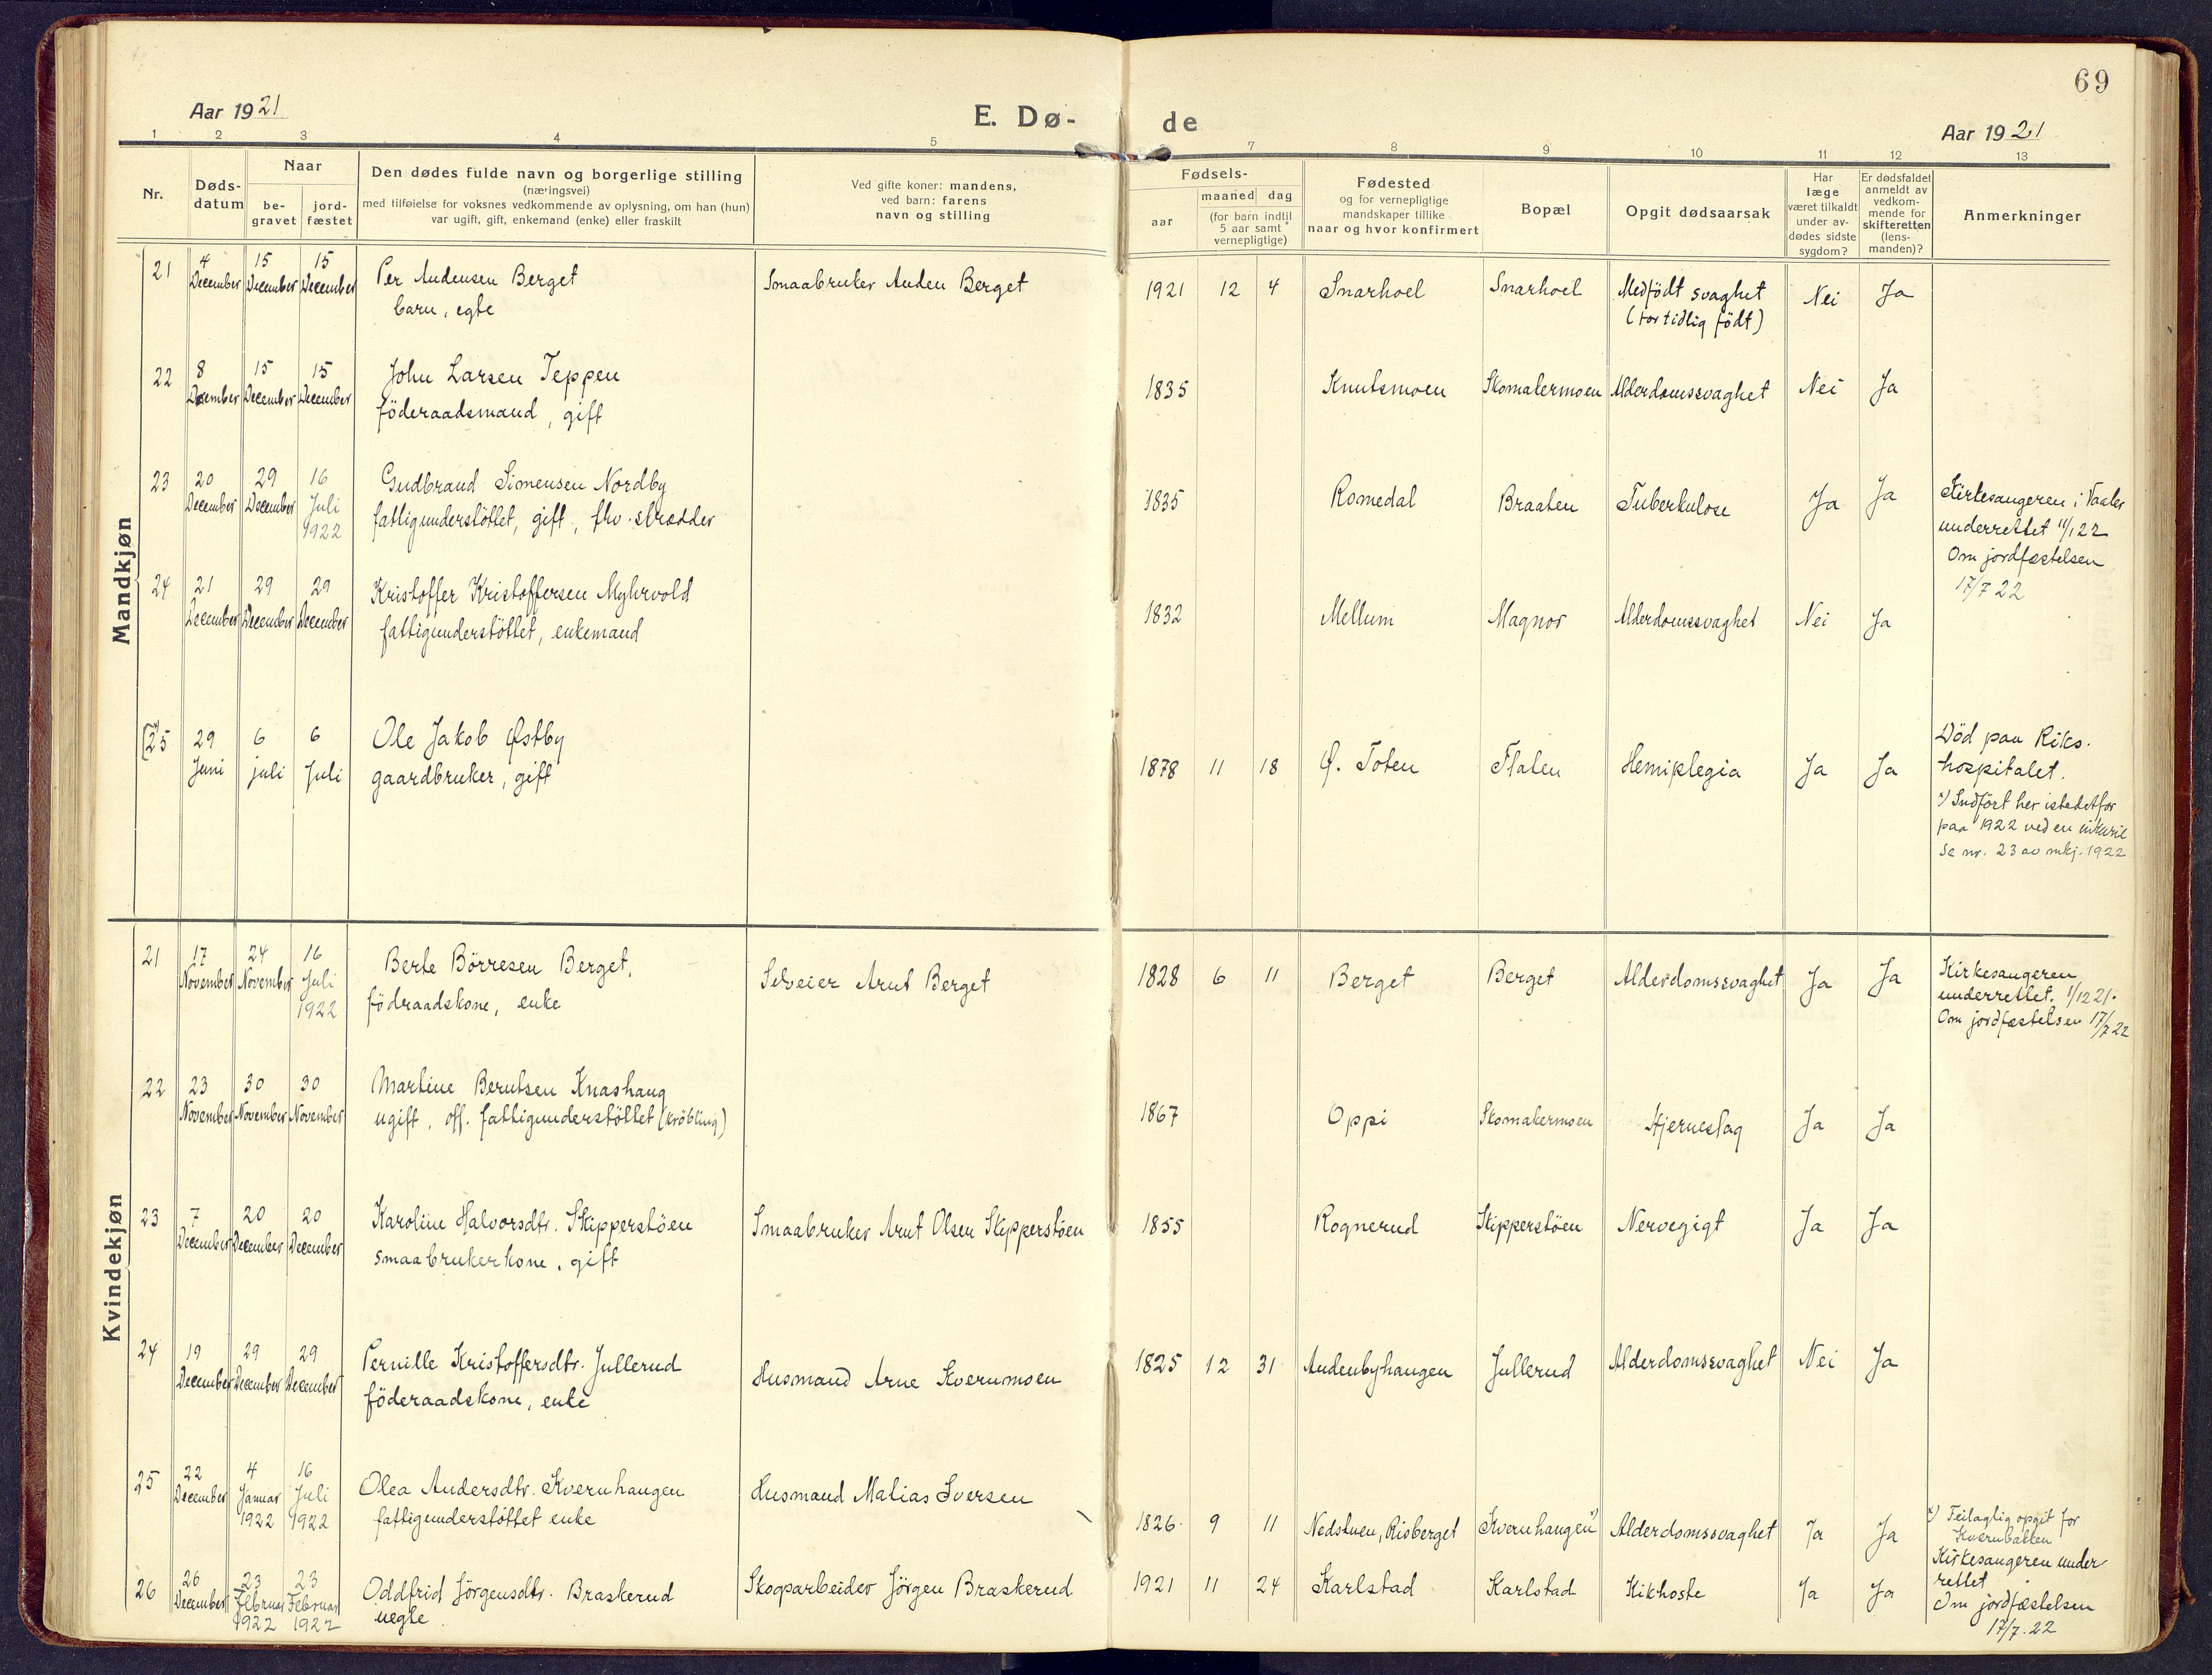 69
Aar 1921
E. Dø- de
Aar 1921
1 2 3 4 5 7 8 9 10 11 12 13
Nr.
Døds-
datum
Naar
be-
gravet
jord-
fæstet
Den dødes fulde navn og borgerlige stilling
(næringsvei)
med tilføielse for voksnes vedkommende av oplysning, om han (hun)
var ugift, gift, enkemand (enke) eller fraskilt
Ved gifte koner: mandens,
ved barn: farens
navn og stilling
Fødsels-
aar
maaned dag
(for barn indtil
5 aar samt
vernepligtige)
Fødested
og for vernepligtige
mandskaper tillike
naar og hvor konfirmert
Bopæl
Opgit dødsaarsak
Har
læge
været tilkaldt
under av-
dødes sidste
sygdom?
Er dødsfaldet
anmeldt av
vedkom-
mende for
skifteretten
(lens-
manden)?
Anmerkninger
Mandkjøn
21 4 15 15 Per Andensen Berget Smaabruker Anden Berget 1921 12 4 Snarhoel Snarhoel Medfödt svaghet Nei Ja
December December December barn, egte (for tidlig födt)
22 8 15 15 John Larsen Teppen 1835 Knutsmoen Skomakermoen Alderdomssvaghet Nei Ja
December December December föderaadsmand, gift
23 20 29 16 Gudbrand Simensen Nordby 1835 Romedal Braaten Tuberkulose Ja Ja Kirkesangeren i Vaaler
December December Juli fattigunderstöttet, gift, fhv. skrædder underrettet 11/1 22
1922 Om jordfæstelsen
17/7 22
24 21 29 29 Kristoffer Kristoffersen Myhrvold 1832 Mellum Magnor Alderdomssvaghet Nei Ja
December December December fattigunderstöttet, enkemand
25 29 6 6 Ole Jakob Østby 1878 11 18 Ø. Toten Flaten Hemiplegia Ja Ja Död paa Riks-
Juni juli Juli gaardbruker, gift hospitalet.
x) Indfört her istedetfor
paa 1922 ved en inkurie
Se nr. 23 av mkj. 1922
Kvindekjøn
21 17 24 16 Berte Börresen Berget, Selveier Arnt Berget 1828 6 11 Berget Berget Alderdomssvaghet Ja Ja Kirkesangeren
November November Juli föderaadskone, enke underrettet. 1/12 21.
1922 Om jordfæstelsen 17/7 22
22 23 30 30 Martine Berntsen Knashaug 1867 Oppi Skomakermoen Hjerneslag Ja Ja
November November November ugift, off. fattigunderstöttet (kröbling)
23 7 20 20 Karoline Halvorsdtr. Skipperstöen Smaabruker Arnt Olsen Skipperstöen 1855 Rognerud Skipperstöen Nervegigt Ja Ja
December December December smaabrukerkone, gift
24 19 29 29 Pernille Kristoffersdtr. Jullerud Husmand Arne Kvernmoen 1825 12 31 Andenbyhaugen Jullerud Alderdomssvaghet Nei Ja
December December December föderaadskone, enke
25 22 4 16 Olea Andersdtr. Kvernhaugen Husmand Matias Iversen 1826 9 11 Nedstuen, Risberget Kvernhaugen x) Alderdomssvaghet Ja Ja x) Feilaglig opgit for
December Januar Juli fattigunderstöttet enke Kvernbakken
1922 1922 Kirkesangeren under-
rettet
Om jordfæstelsen
17/7. 22
26 26 23 23 Oddfrid Jörgensdtr. Braskerud Skogsarbeider Jörgen Braskerud 1921 11 24 Karlstad Karlstad Kikhoste Ja Ja
December Februar Februar uegte
1922 1922